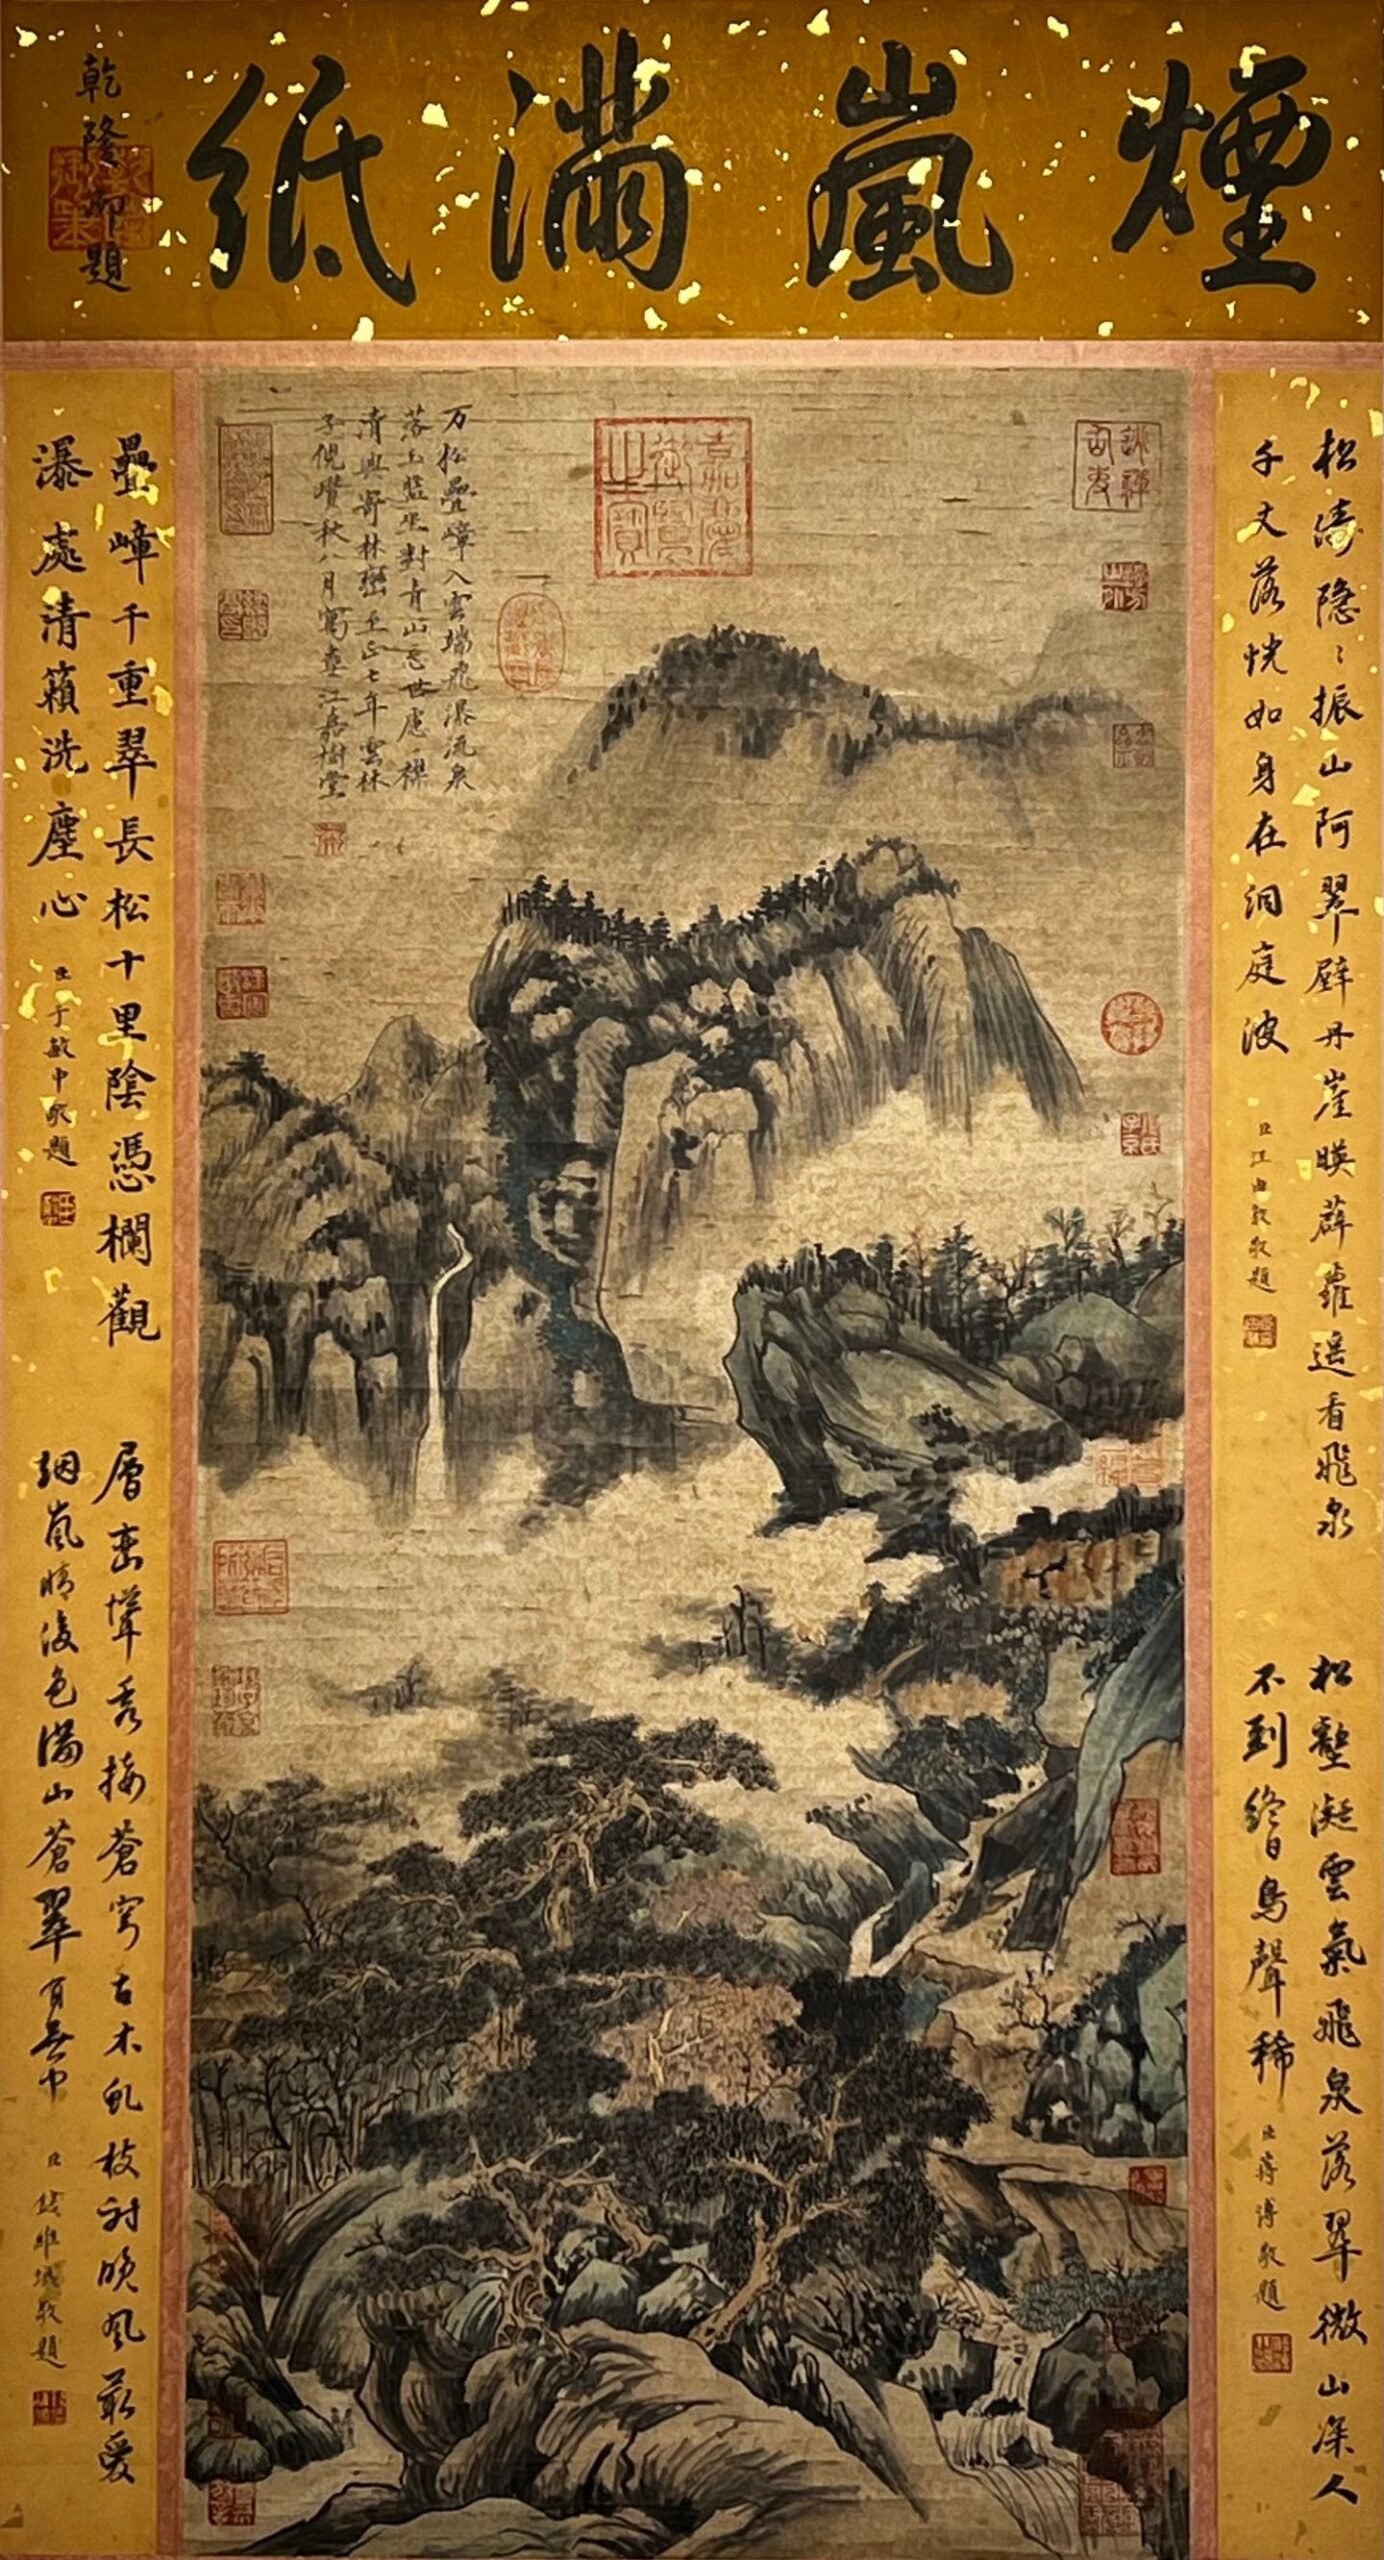 煙嵐滿紙
乾隆御題
万松疊嶂入雲端飛瀑流泉
落玉盤坐對青山忘世慮一襟
清興寄林巒至正七年雲林
子倪瓚秋八月寫壺江嘉樹堂
嘉慶御覽之寶
松濤隐〻振山阿翠壁丹崖暎薜蘿遥看飛泉
千丈落恍如身在洞庭波
臣汪由敦敬題
松壑凝雲氣飛泉落翠微山深人
不到終日鳥聲稀
臣蔣溥敬題
疊嶂千重翠長松十里陰憑欄觀
瀑處清籟洗塵心
臣于敏中敬題
層巒聳秀接蒼穹古木虬枝討晚風最愛
烟嵐晴後色滿山蒼翠有無中
臣錢維城敬題